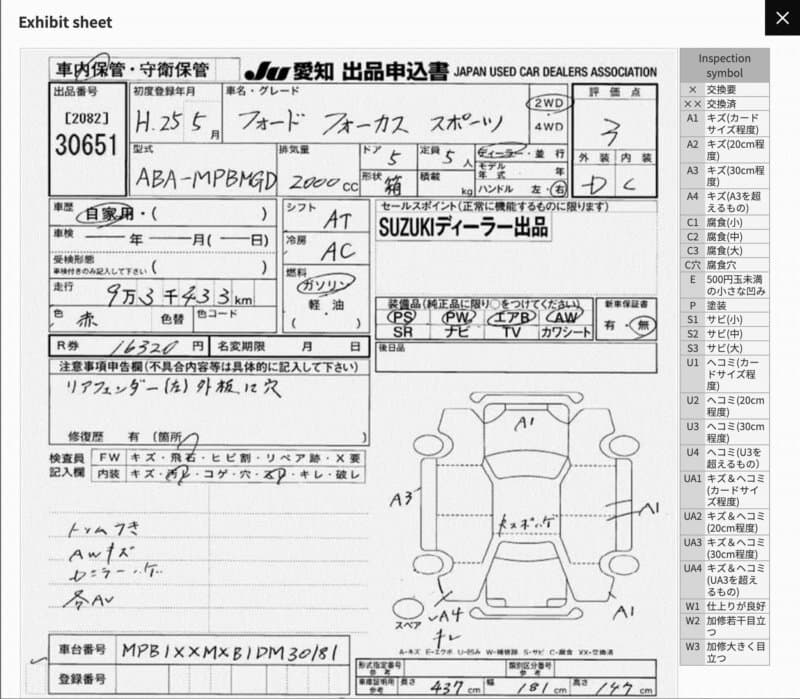 Exhibit sheet
×
車内保管・守衛保管
JU 愛知 出品申込書 JAPAN USED CAR DEALERS ASSOCIATION
出品番号
[2082]
30651
初度登録年月
H.25 5月
車名・グレード
フォード フォーカス スポーツ
2WD
4WD
評価点
3
外装 内装
D C
型式
ABA-MPBMGD
排気量
2000cc
ドア 5
形状 箱
定員 5人
積載 kg
ディーラー・並行
モデル年式 年
ハンドル 左・右
車歴 自家用・( )
車検 ―年―月(―日)
受検形態
車検付きのみ記入して下さい ( )
走行 9万3千433km
色 赤
色替
色コード
シフト AT
冷房 AC
燃料
ガソリン
軽・油
( )
セールスポイント(正常に機能するものに限ります)
SUZUKIディーラー出品
装備品(純正品に限り○をつけてください)
PS PW エアB AW
SR ナビ TV カワシート
新車保証書
有・無
R券 16320円
名変期限 月 日
後日品
注意事項申告欄(不具合内容等は具体的に記入して下さい)
リアフェンダー(左)外板に穴
修復歴 有 (箇所 )
検査員記入欄
FW キズ・飛石・ヒビ割・リペア跡・X要
内装 キズ・汚れ・コゲ・穴・スレ・キレ・破レ
AWキズ
A1
A3
A1
A4
キレ
A1
スペア
A-キズ E-エクボ U-凹み W-補修跡 S-サビ C-腐食 XX-交換済
車台番号 MPB1XXMXB1DM30181
登録番号
形式指定番号
参考
類別区分番号
参考
車検証明記録
参考
長さ 437cm
幅 181cm
高さ 147cm
Inspection symbol
× 交換要
×× 交換済
A1 キズ(カードサイズ程度)
A2 キズ(20cm程度)
A3 キズ(30cm程度)
A4 キズ(A3を超えるもの)
C1 腐食(小)
C2 腐食(中)
C3 腐食(大)
C穴 腐食穴
E 500円玉未満の小さな凹み
P 塗装
S1 サビ(小)
S2 サビ(中)
S3 サビ(大)
U1 ヘコミ(カードサイズ程度)
U2 ヘコミ(20cm程度)
U3 ヘコミ(30cm程度)
U4 ヘコミ(U3を超えるもの)
UA1 キズ＆ヘコミ(カードサイズ程度)
UA2 キズ＆ヘコミ(20cm程度)
UA3 キズ＆ヘコミ(30cm程度)
UA4 キズ＆ヘコミ(UA3を超えるもの)
W1 仕上りが良好
W2 加修若干目立つ
W3 加修大きく目立つ